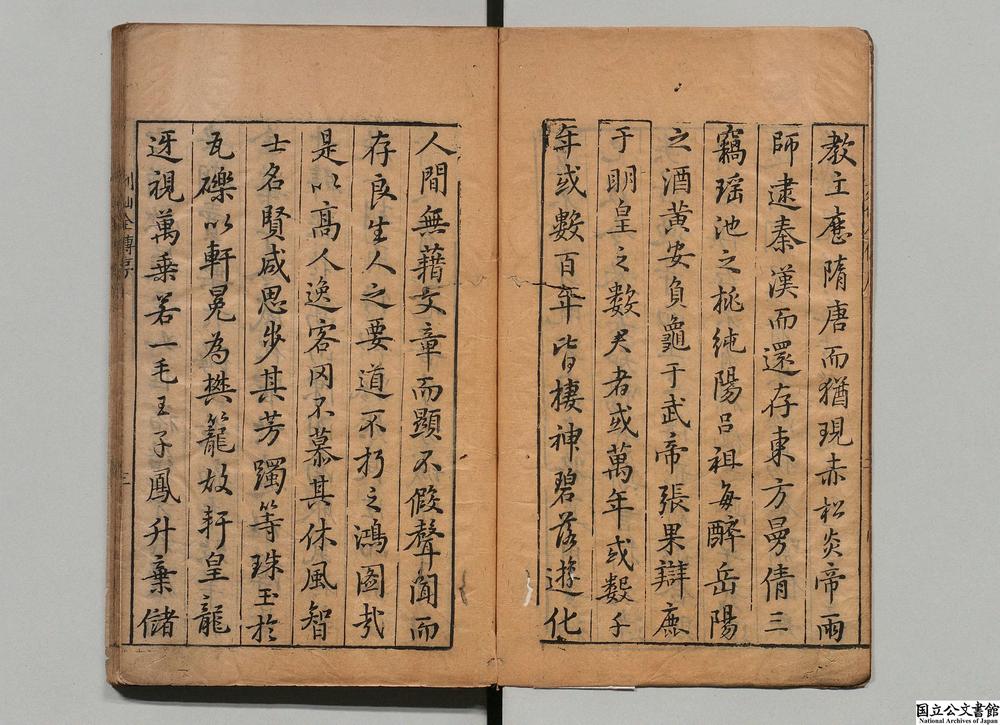 教主應隋唐而猶現赤松炎帝雨
師逮秦漢而還存東方曼倩三
竊瑶池之桃純陽吕祖每醉岳陽
之酒黄安負龜于武帝張果辯鹿
于明皇之數君者或萬年或數千
年或數百年皆棲神碧落遊化
人間無藉文章而顯不假聲聞而
存良生人之要道不朽之鴻圖哉
是以高人逸客罔不慕其休風智
士名賢咸思步其芳躅等珠玉於
瓦礫以軒冕為樊籠故軒皇龍
迓視萬乗若一毛王子鳳升棄儲
列仙全傳序
三
国立公文書館
National Archives of Japan